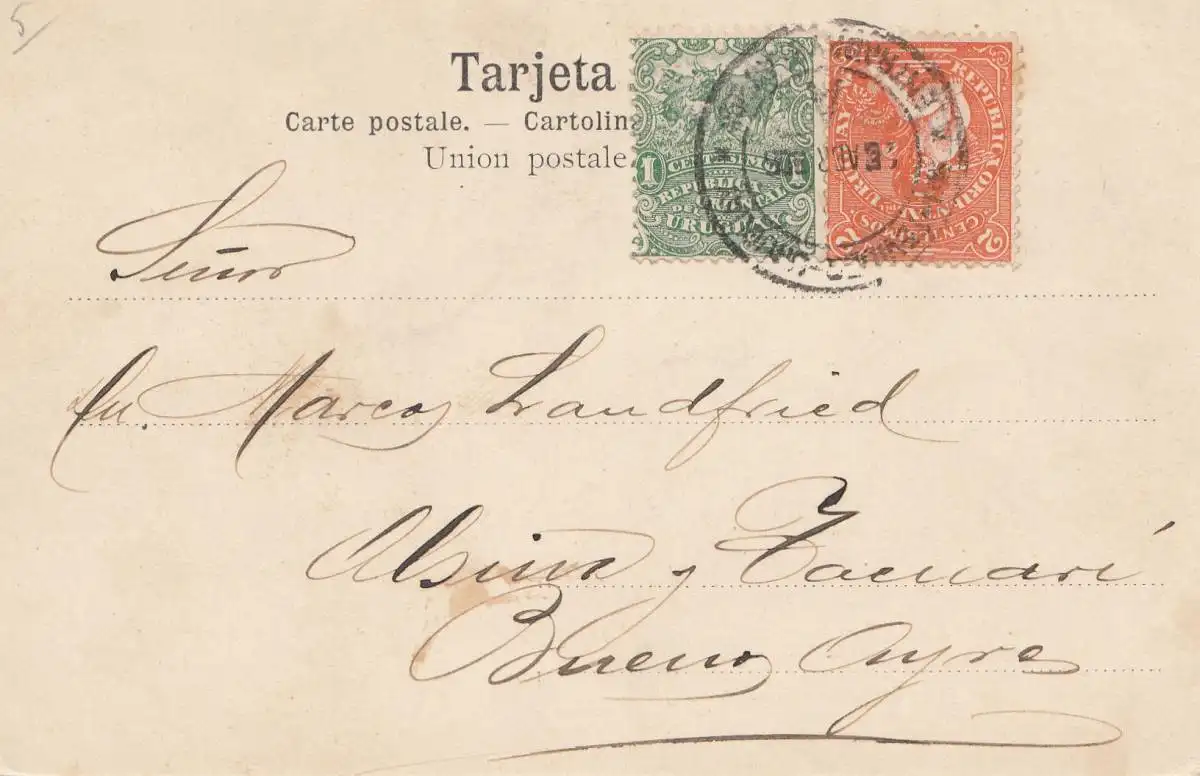 5
Tarjeta
Carte postale. — Cartolin
Union postale
1 CENTESIMO 1
REPUBLICA
ORIENTAL
DEL
URUGUAY
REPUBLICA ORIENTAL DEL URUGUAY
2 CENTESIMOS 2
Señor
Dn. Marcos Landfried
Alsina y Tacuarí
Buenos Ayres